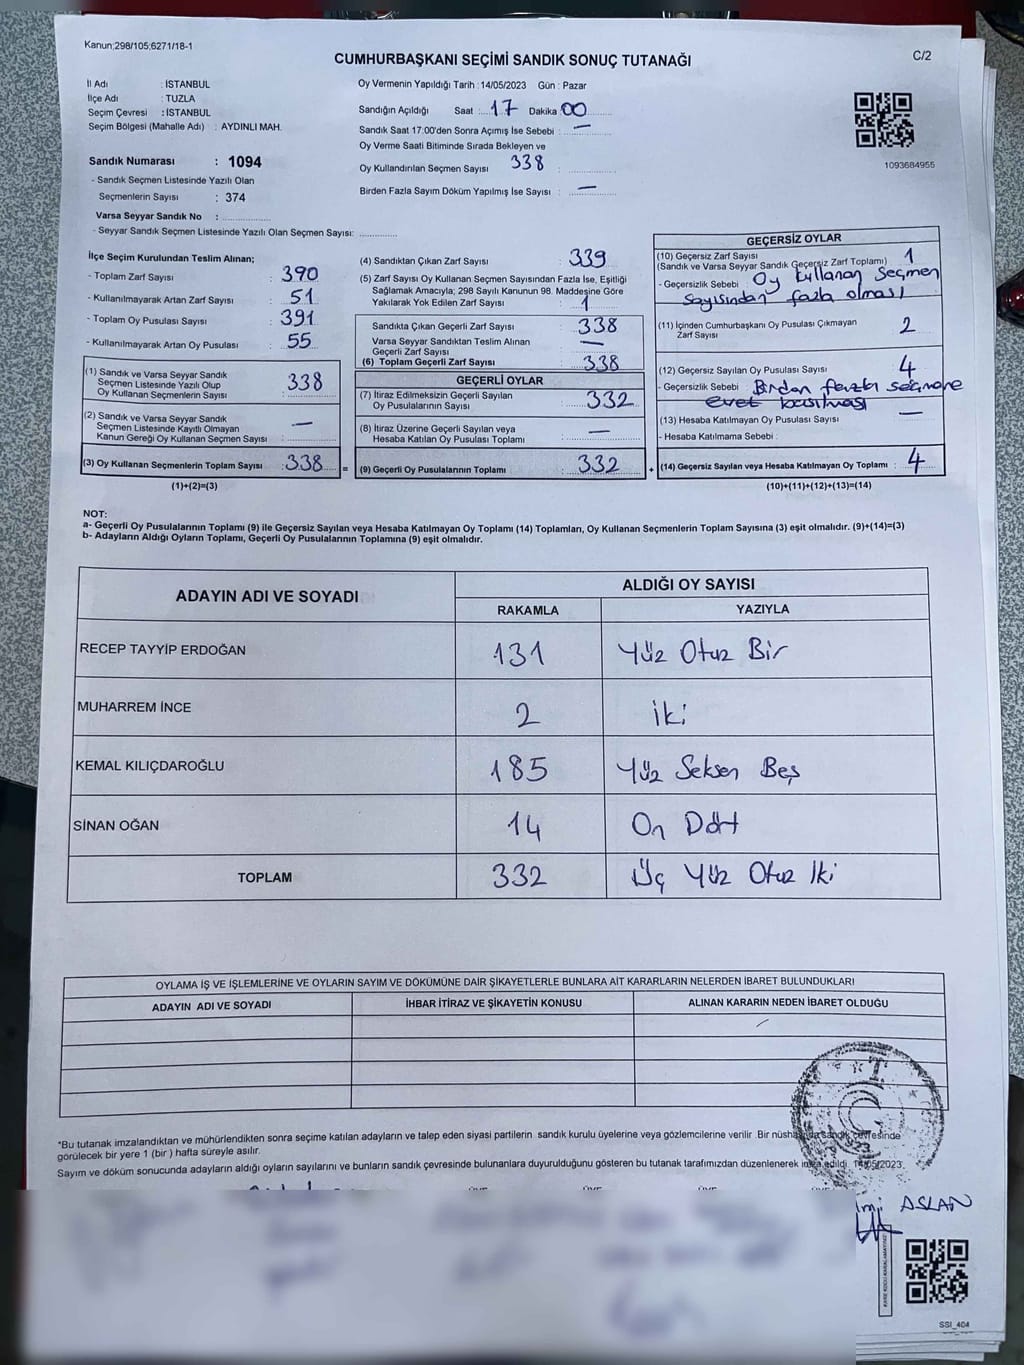 Kanun;298/105;6271/18-1
CUMHURBAŞKANI SEÇİMİ SANDIK SONUÇ TUTANAĞI
C/2
İl Adı : İSTANBUL
İlçe Adı : TUZLA
Seçim Çevresi : İSTANBUL
Seçim Bölgesi (Mahalle Adı) : AYDINLI MAH.
Sandık Numarası : 1094
- Sandık Seçmen Listesinde Yazılı Olan
Seçmenlerin Sayısı : 374
Varsa Seyyar Sandık No : ..............
- Seyyar Sandık Seçmen Listesinde Yazılı Olan Seçmen Sayısı: ..............
Oy Vermenin Yapıldığı Tarih : 14/05/2023 Gün : Pazar
Sandığın Açıldığı Saat : 17 Dakika 00
Sandık Saat 17:00'den Sonra Açımış İse Sebebi : —
Oy Verme Saati Bitiminde Sırada Bekleyen ve
Oy Kullandırılan Seçmen Sayısı 338 :
Birden Fazla Sayım Döküm Yapılmış İse Sayısı : —
1093684955
İlçe Seçim Kurulundan Teslim Alınan;
- Toplam Zarf Sayısı : 390
- Kullanılmayarak Artan Zarf Sayısı : 51
- Toplam Oy Pusulası Sayısı : 391
- Kullanılmayarak Artan Oy Pusulası : 55
(1) Sandık ve Varsa Seyyar Sandık
Seçmen Listesinde Yazılı Olup
Oy Kullanan Seçmenlerin Sayısı : 338
(2) Sandık ve Varsa Seyyar Sandık
Seçmen Listesinde Kayıtlı Olmayan
Kanun Gereği Oy Kullanan Seçmen Sayısı : —
(3) Oy Kullanan Seçmenlerin Toplam Sayısı : 338 =
(1)+(2)=(3)
(4) Sandıktan Çıkan Zarf Sayısı : 339
(5) Zarf Sayısı Oy Kullanan Seçmen Sayısından Fazla İse, Eşitliği
Sağlamak Amacıyla, 298 Sayılı Kanunun 98. Maddesine Göre
Yakılarak Yok Edilen Zarf Sayısı : 1
Sandıkta Çıkan Geçerli Zarf Sayısı : 338
Varsa Seyyar Sandıktan Teslim Alınan
Geçerli Zarf Sayısı : —
(6) Toplam Geçerli Zarf Sayısı : 338
GEÇERLİ OYLAR
(7) İtiraz Edilmeksizin Geçerli Sayılan
Oy Pusulalarının Sayısı : 332
(8) İtiraz Üzerine Geçerli Sayılan veya
Hesaba Katılan Oy Pusulası Toplamı : —
(9) Geçerli Oy Pusulalarının Toplamı : 332 +
GEÇERSİZ OYLAR
(10) Geçersiz Zarf Sayısı
(Sandık ve Varsa Seyyar Sandık Geçersiz Zarf Toplamı) : 1
- Geçersizlik Sebebi Oy kullanan seçmen
sayısından fazla olması
(11) İçinden Cumhurbaşkanı Oy Pusulası Çıkmayan
Zarf Sayısı : 2
(12) Geçersiz Sayılan Oy Pusulası Sayısı : 4
- Geçersizlik Sebebi Birden fazla seçmene
evet basılması
(13) Hesaba Katılmayan Oy Pusulası Sayısı : —
- Hesaba Katılmama Sebebi :
(14) Geçersiz Sayılan veya Hesaba Katılmayan Oy Toplamı : 4
(10)+(11)+(12)+(13)=(14)
NOT:
a- Geçerli Oy Pusulalarının Toplamı (9) ile Geçersiz Sayılan veya Hesaba Katılmayan Oy Toplamı (14) Toplamları, Oy Kullanan Seçmenlerin Toplam Sayısına (3) eşit olmalıdır. (9)+(14)=(3)
b- Adayların Aldığı Oyların Toplamı, Geçerli Oy Pusulalarının Toplamına (9) eşit olmalıdır.
ADAYIN ADI VE SOYADI
ALDIĞI OY SAYISI
RAKAMLA YAZIYLA
RECEP TAYYİP ERDOĞAN 131 Yüz Otuz Bir
MUHARREM İNCE 2 İki
KEMAL KILIÇDAROĞLU 185 Yüz Seksen Beş
SİNAN OĞAN 14 On Dört
TOPLAM 332 Üç Yüz Otuz İki
OYLAMA İŞ VE İŞLEMLERİNE VE OYLARIN SAYIM VE DÖKÜMÜNE DAİR ŞİKAYETLERLE BUNLARA AİT KARARLARIN NELERDEN İBARET BULUNDUKLARI
ADAYIN ADI VE SOYADI İHBAR İTİRAZ VE ŞİKAYETİN KONUSU ALINAN KARARIN NEDEN İBARET OLDUĞU
T.
*Bu tutanak imzalandıktan ve mühürlendikten sonra seçime katılan adayların ve talep eden siyasi partilerin sandık kurulu üyelerine veya gözlemcilerine verilir. Bir nüshası da sandık çevresinde
görülecek bir yere 1 (bir ) hafta süreyle asılır.
Sayım ve döküm sonucunda adayların aldığı oyların sayılarını ve bunların sandık çevresinde bulunanlara duyurulduğunu gösteren bu tutanak tarafımızdan düzenlenerek imza edildi. 14/05/2023
ASLAN
SSİ_404